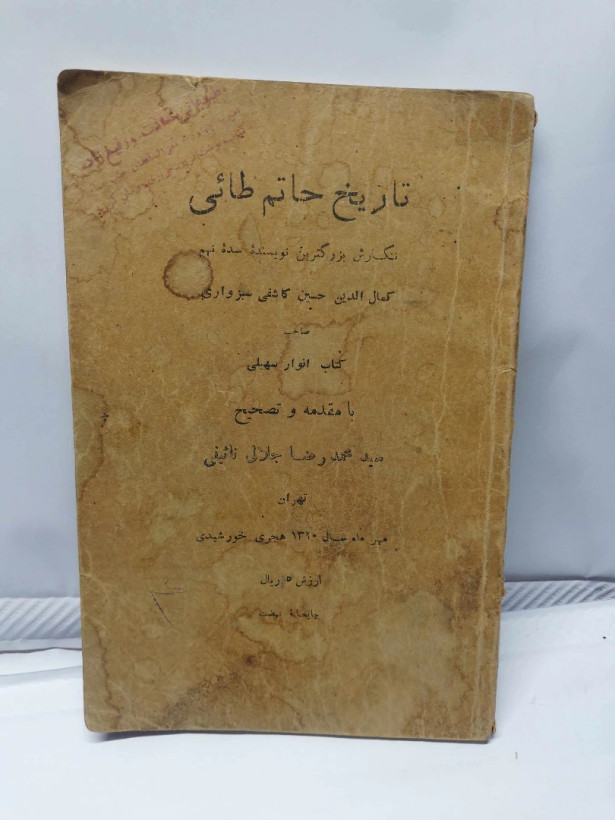 تاریخ حاتم طائی
نگارش بزرگترین نویسندهٔ سدهٔ نهم
کمال الدین حسین کاشفی سبزواری
صاحب
کتاب انوار سهیلی
با مقدمه و تصحیح
سید محمد رضا جلالی نائینی
تهران
مهر ماه سال ۱۳۲۰ هجری خورشیدی
ارزش ۵ ریال
چاپخانهٔ نهضت